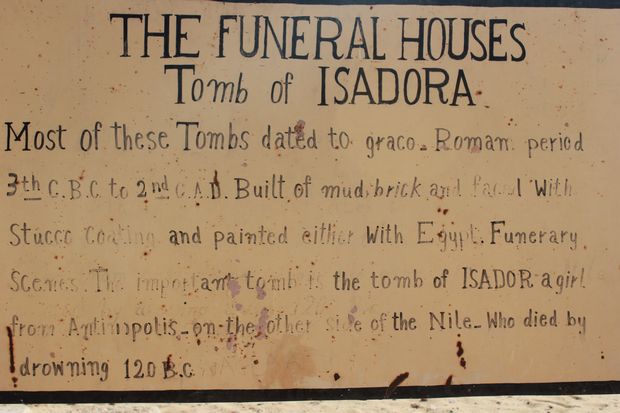 THE FUNERAL HOUSES
Tomb of ISADORA
Most of these Tombs dated to graco - Roman period
3th C.B.C to 2nd C.A.D. Built of mud brick and faced With
Stucco Coating and painted either With Egypt. Funerary
Scenes The important tomb is the tomb of ISADOR a girl
from Antinopolis - on the other side of the Nile - Who died by
drowning 120 B.C